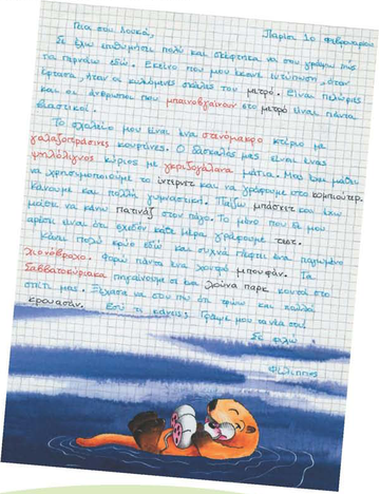 Γεια σου Λουκά,
Παρίσι 10 Φεβρουαρίου
Σε έχω επιθυμήσει πολύ και σκέφτηκα να σου γράψω πώς
τα περνάω εδώ. Εκείνο που μου έκανε εντύπωση, όταν
έφτασα, ήταν οι κυλιόμενες σκάλες του μετρό. Είναι πελώριες
και οι άνθρωποι που μπαινοβγαίνουν στο μετρό είναι πάντα
βιαστικοί.
Το σχολείο μου είναι ένα στενόμακρο κτίριο με
γαλαζοπράσινες κουρτίνες. Ο δάσκαλός μας είναι ένας
ψηλόλιγνος κύριος με γκριζογάλανα μάτια. Μας έχει μάθει
να χρησιμοποιούμε το ίντερνετ και να γράφουμε στο κομπιούτερ.
Κάνουμε και πολλή γυμναστική. Παίζω μπάσκετ και έχω
μάθει να κάνω πατινάζ στον πάγο. Το μόνο που δε μου
αρέσει είναι ότι σχεδόν κάθε μέρα γράφουμε τεστ.
Κάνει πολύ κρύο εδώ και συχνά πέφτει ένα παγωμένο
χιονόβροχο. Φοράω πάντα ένα χοντρό μπουφάν. Τα
Σαββατοκύριακα πηγαίνουμε σε ένα λούνα παρκ κοντά στο
σπίτι μας. Ξέχασα να σου πω ότι τρώω και πολλά
κρουασάν. Εσύ τι κάνεις; Γράψε μου τα νέα σου!
Σε φιλώ
Φίλιππος